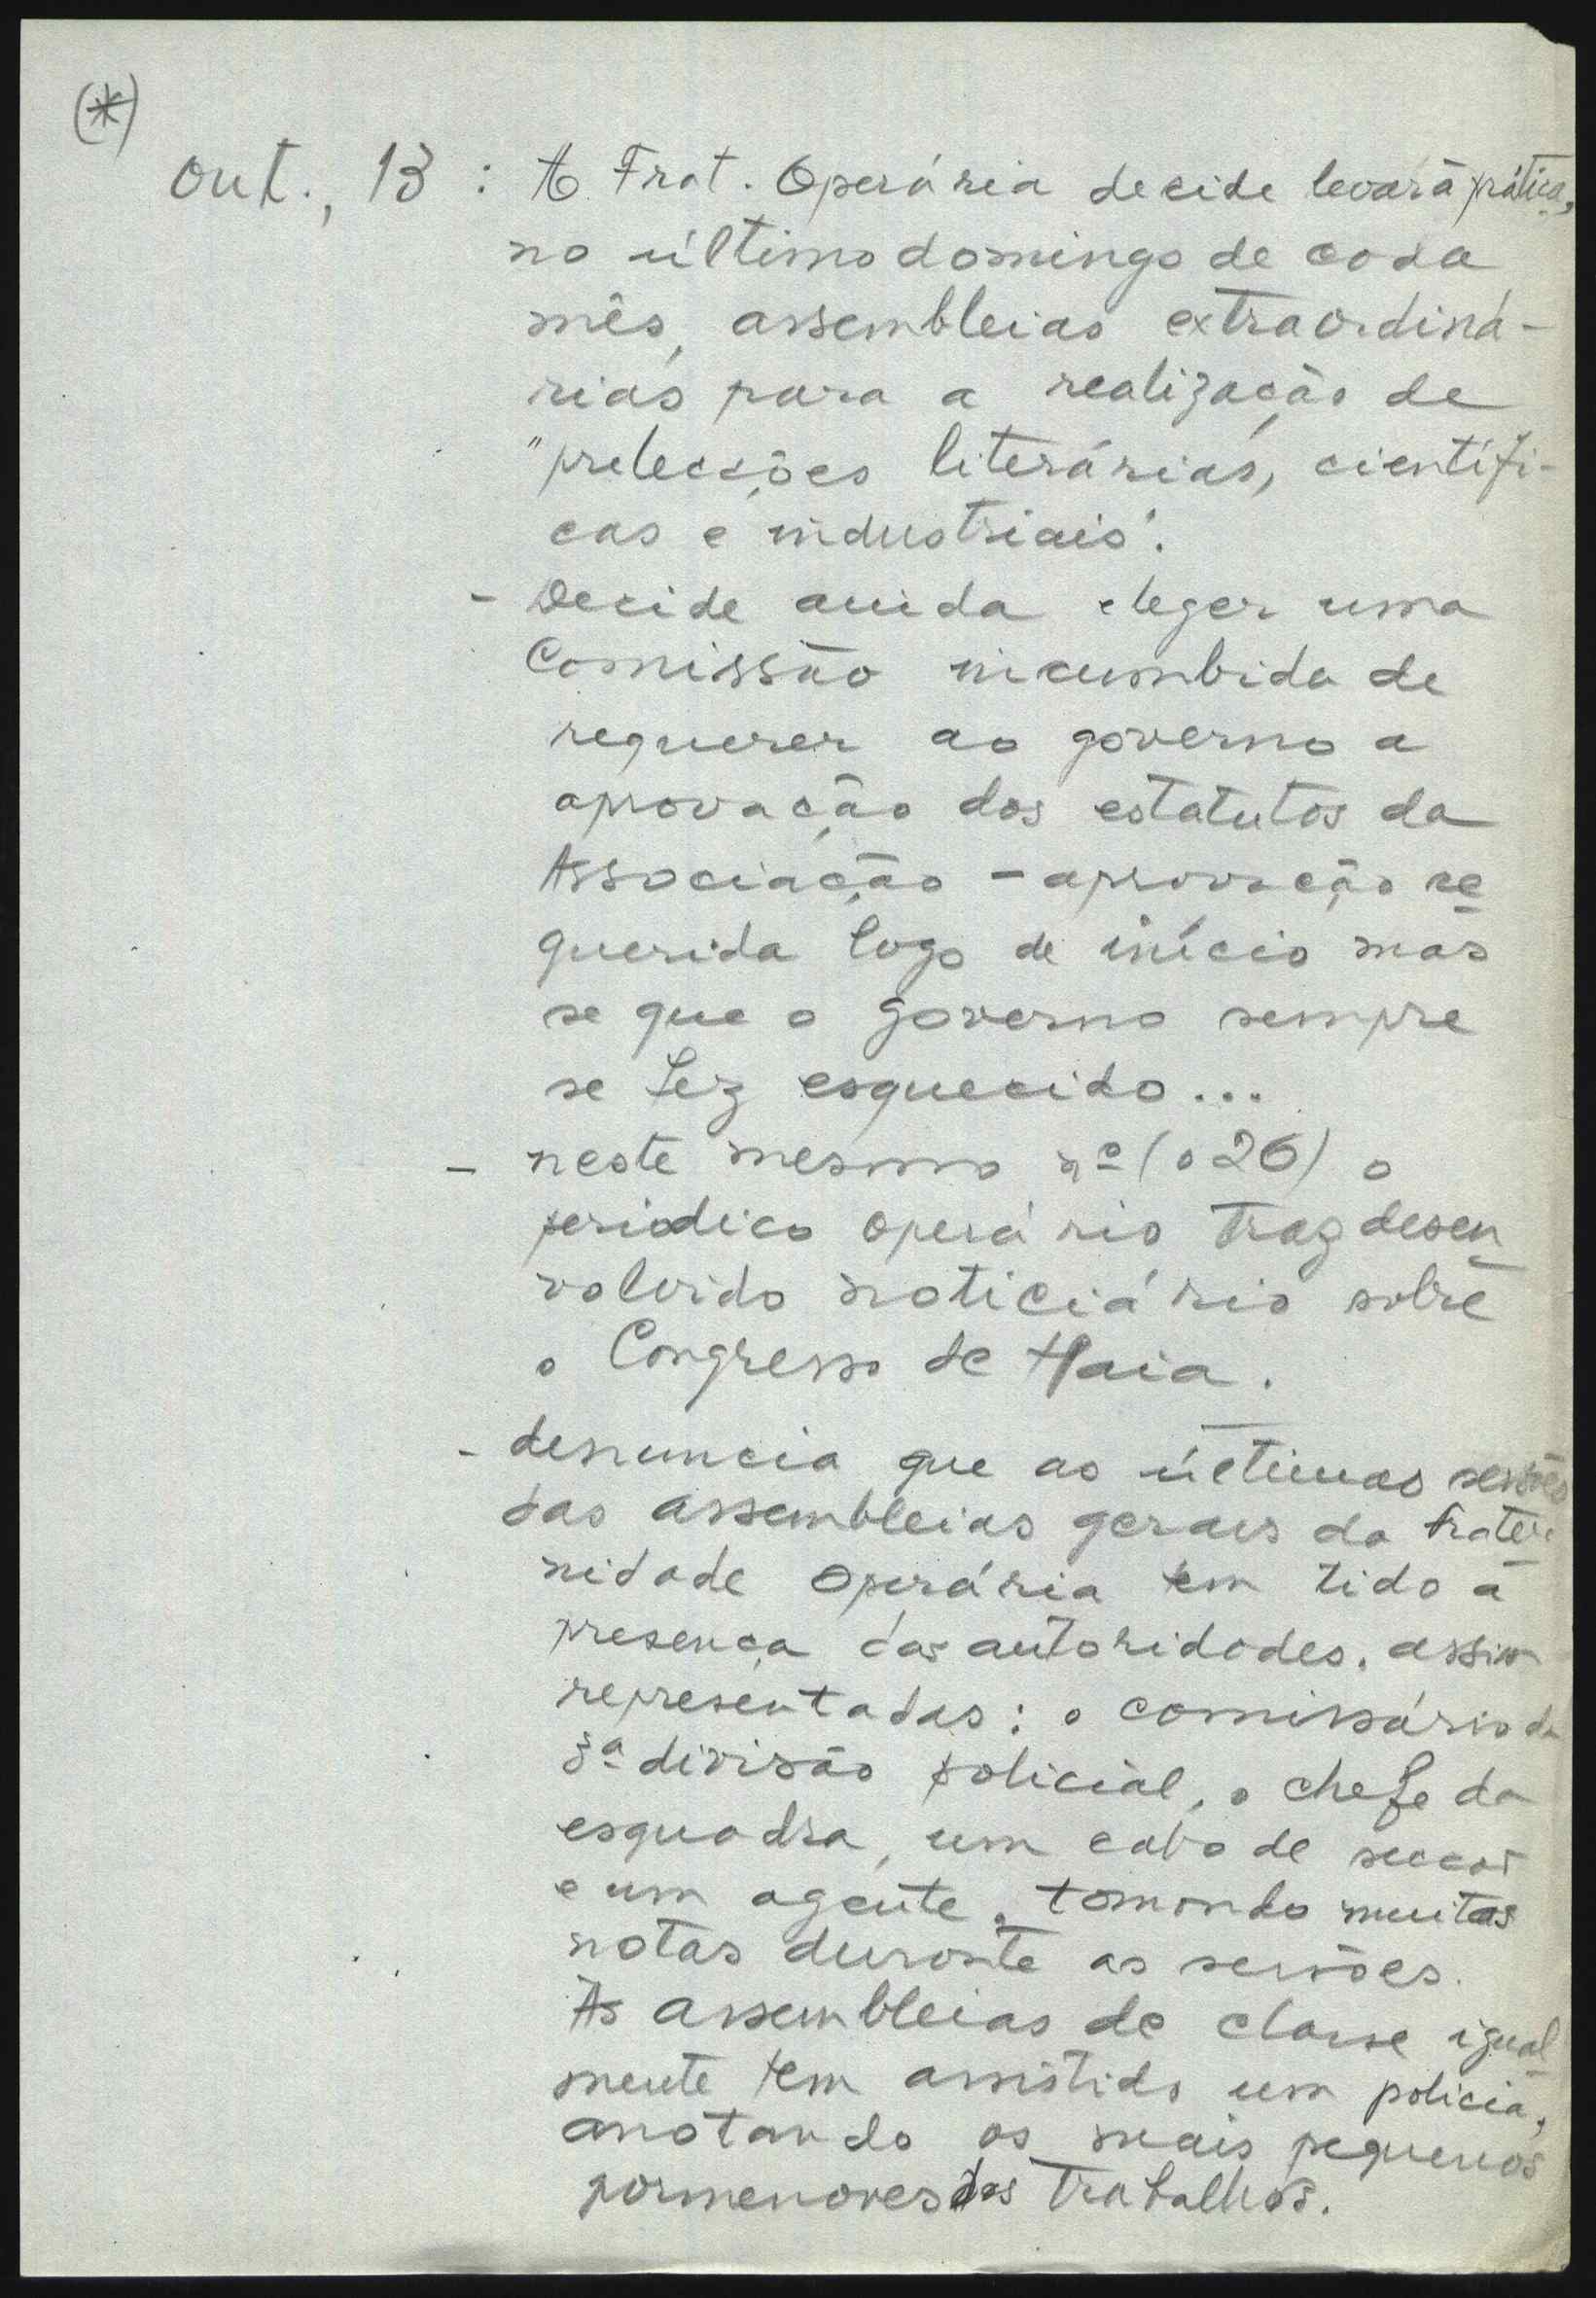 (*)
out., 13 : A Frat. Operária decide levar à prática,
no último domingo de cada
mês, assembleias extraordiná-
rias para a realização de
"prelecções literárias, científi-
cas e industriais".
- Decide ainda eleger uma
Comissão incumbida de
requerer ao governo a
aprovação dos estatutos da
Associação - aprovação re
querida logo de início mas
se que o governo sempre
se fez esquecido...
- neste mesmo nº (o 26) o
periodico operário traz desen
volvido noticiário sobre
o Congresso de Haia.
- denuncia que as últimas sessões
das assembleias gerais da Frater
nidade Operária tem tido a
presença das autoridades, assim
representadas: o comissário da
3ª divisão policial, o chefe da
esquadra, um cabo de
e um agente, tomando muitas
notas durante as sessões.
As assembleias de classe igual
mente tem assistido um policia,
anotando os mais pequenos
pormenores dos trabalhos.